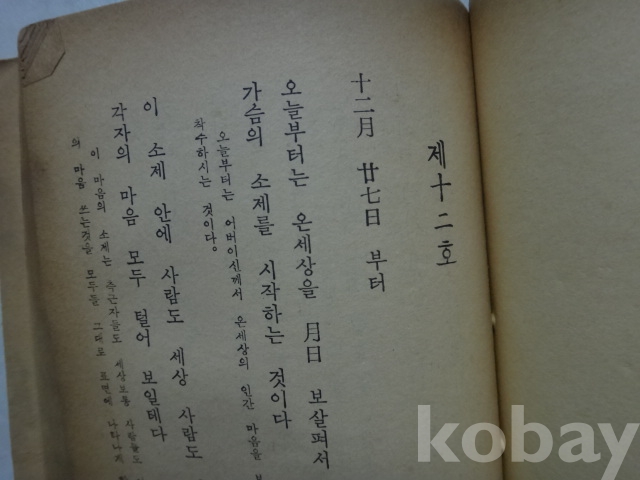 제十二호
十二月 廿七日 부터
오늘부터는 온세상을 月日 보살펴서
가슴의 소제를 시작하는 것이다
오늘부터는 어버이신께서 온세상의 인간 마음을
착수하시는 것이다。
이 소제 안에 사람도 세상 사람도
각자의 마음 모두 털어 보일테다
이 마음의 소제는 측근자들도 세상보통 사람들도
의 마음 쓰는것을 모두들 그대로 표면에 나타나게
kobay